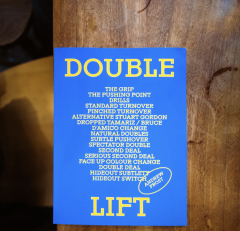 DOUBLE
THE GRIP
THE PUSHING POINT
DRILLS
STANDARD TURNOVER
PINCHED TURNOVER
ALTERNATIVE STUART GORDON
DROPPED TAMARIZ / BRUCE
D'AMICO CHANGE
NATURAL DOUBLES
SUBTLE PUSHOVER
SPECTATOR DOUBLE
SECOND DEAL
SERIOUS SECOND DEAL
FACE UP COLOUR CHANGE
DOUBLE DEAL
HIDEOUT SUBTLETY
HIDEOUT SWITCH
ANDREW
FROST
LIFT